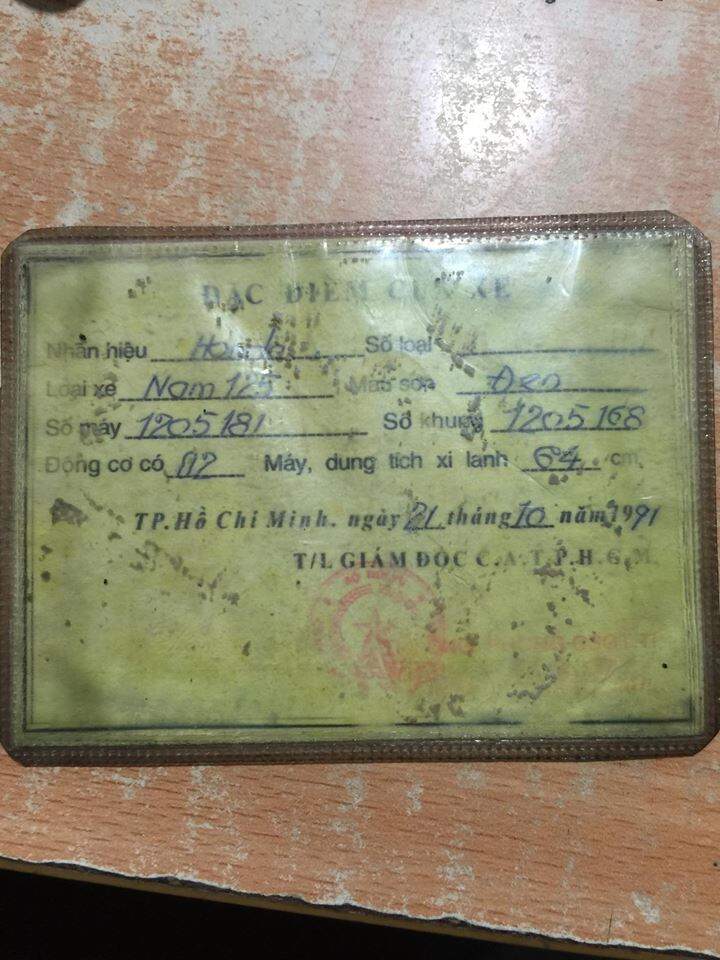 ĐẶC ĐIỂM CỦA XE
Nhãn hiệu Honda Số loại
Loại xe Nam 125 Màu sơn Đen
Số máy 1205181 Số khung 1205168
Động cơ có 02 Máy, dung tích xi lanh 64 cm
TP.Hồ Chí Minh. ngày 21 tháng 10 năm 1991
T/L GIÁM ĐỐC C.A.T.P.H.C.M.